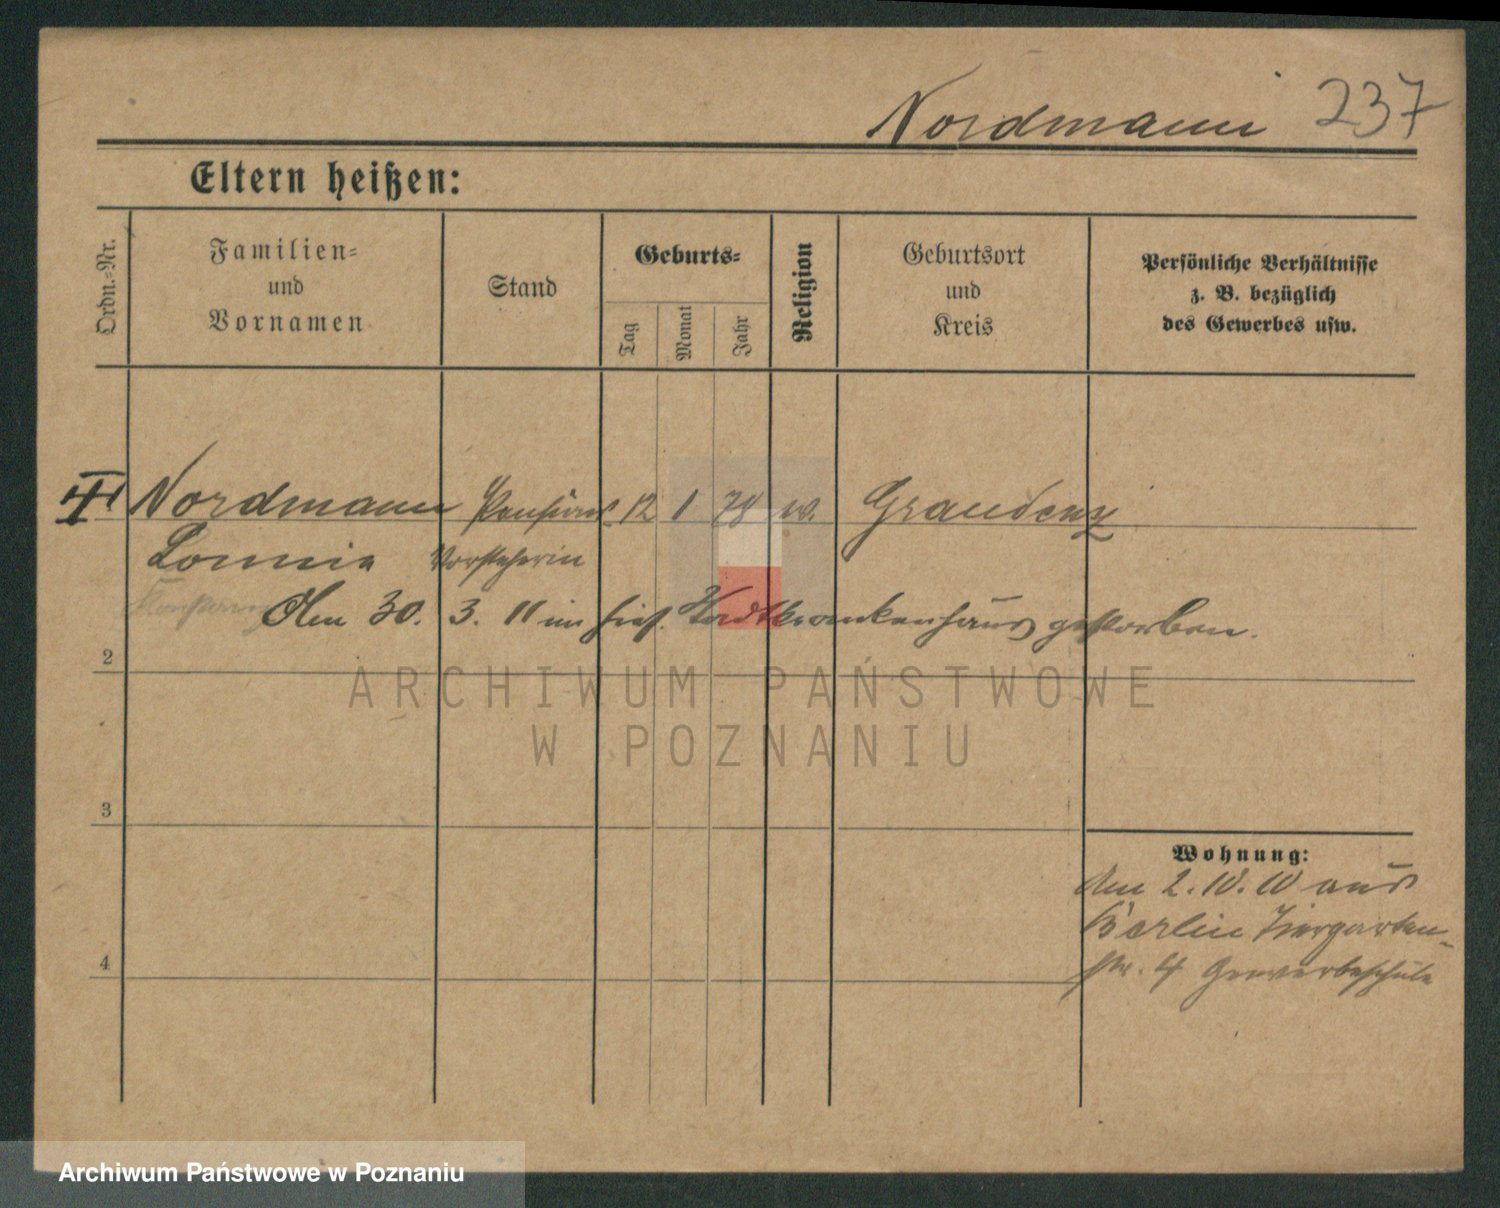 Nordmann 237
Eltern heißen:
Ordn.-Nr.
Familien-
und
Vornamen
Stand
Geburts-
Tag
Monat
Jahr
Religion
Geburtsort
und
Kreis
Persönliche Verhältnisse
z. B. bezüglich
des Gewerbes usw.
Nordmann Pensions 12 1 78 w. Graudenz
Vorsteherin
Am 30. 3. 11 im hies. Stadtkrankenhaus gestorben.
2
ARCHIWUM PAŃSTWOWE
W POZNANIU
3
Wohnung:
Am 2.10.10 aus
Berlin Tiergarten-
str. 4 Gewerbeschule
4
Archiwum Państwowe w Poznaniu